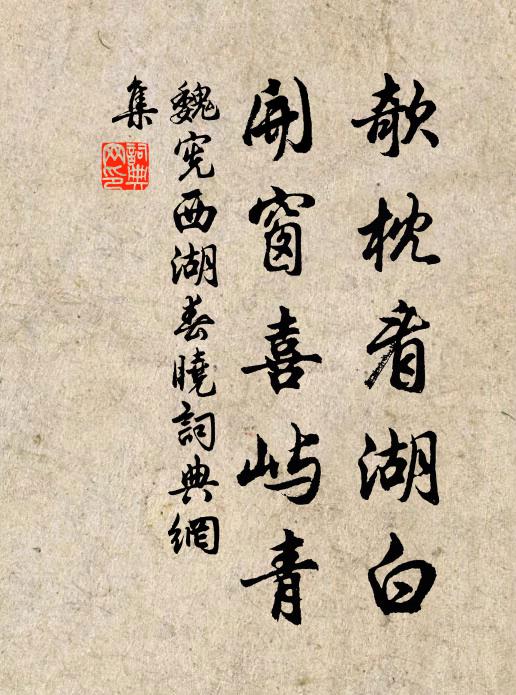 欹枕看湖白
開窗喜屿青
魏宪西湖春曉詞典網
集
詞典
网印